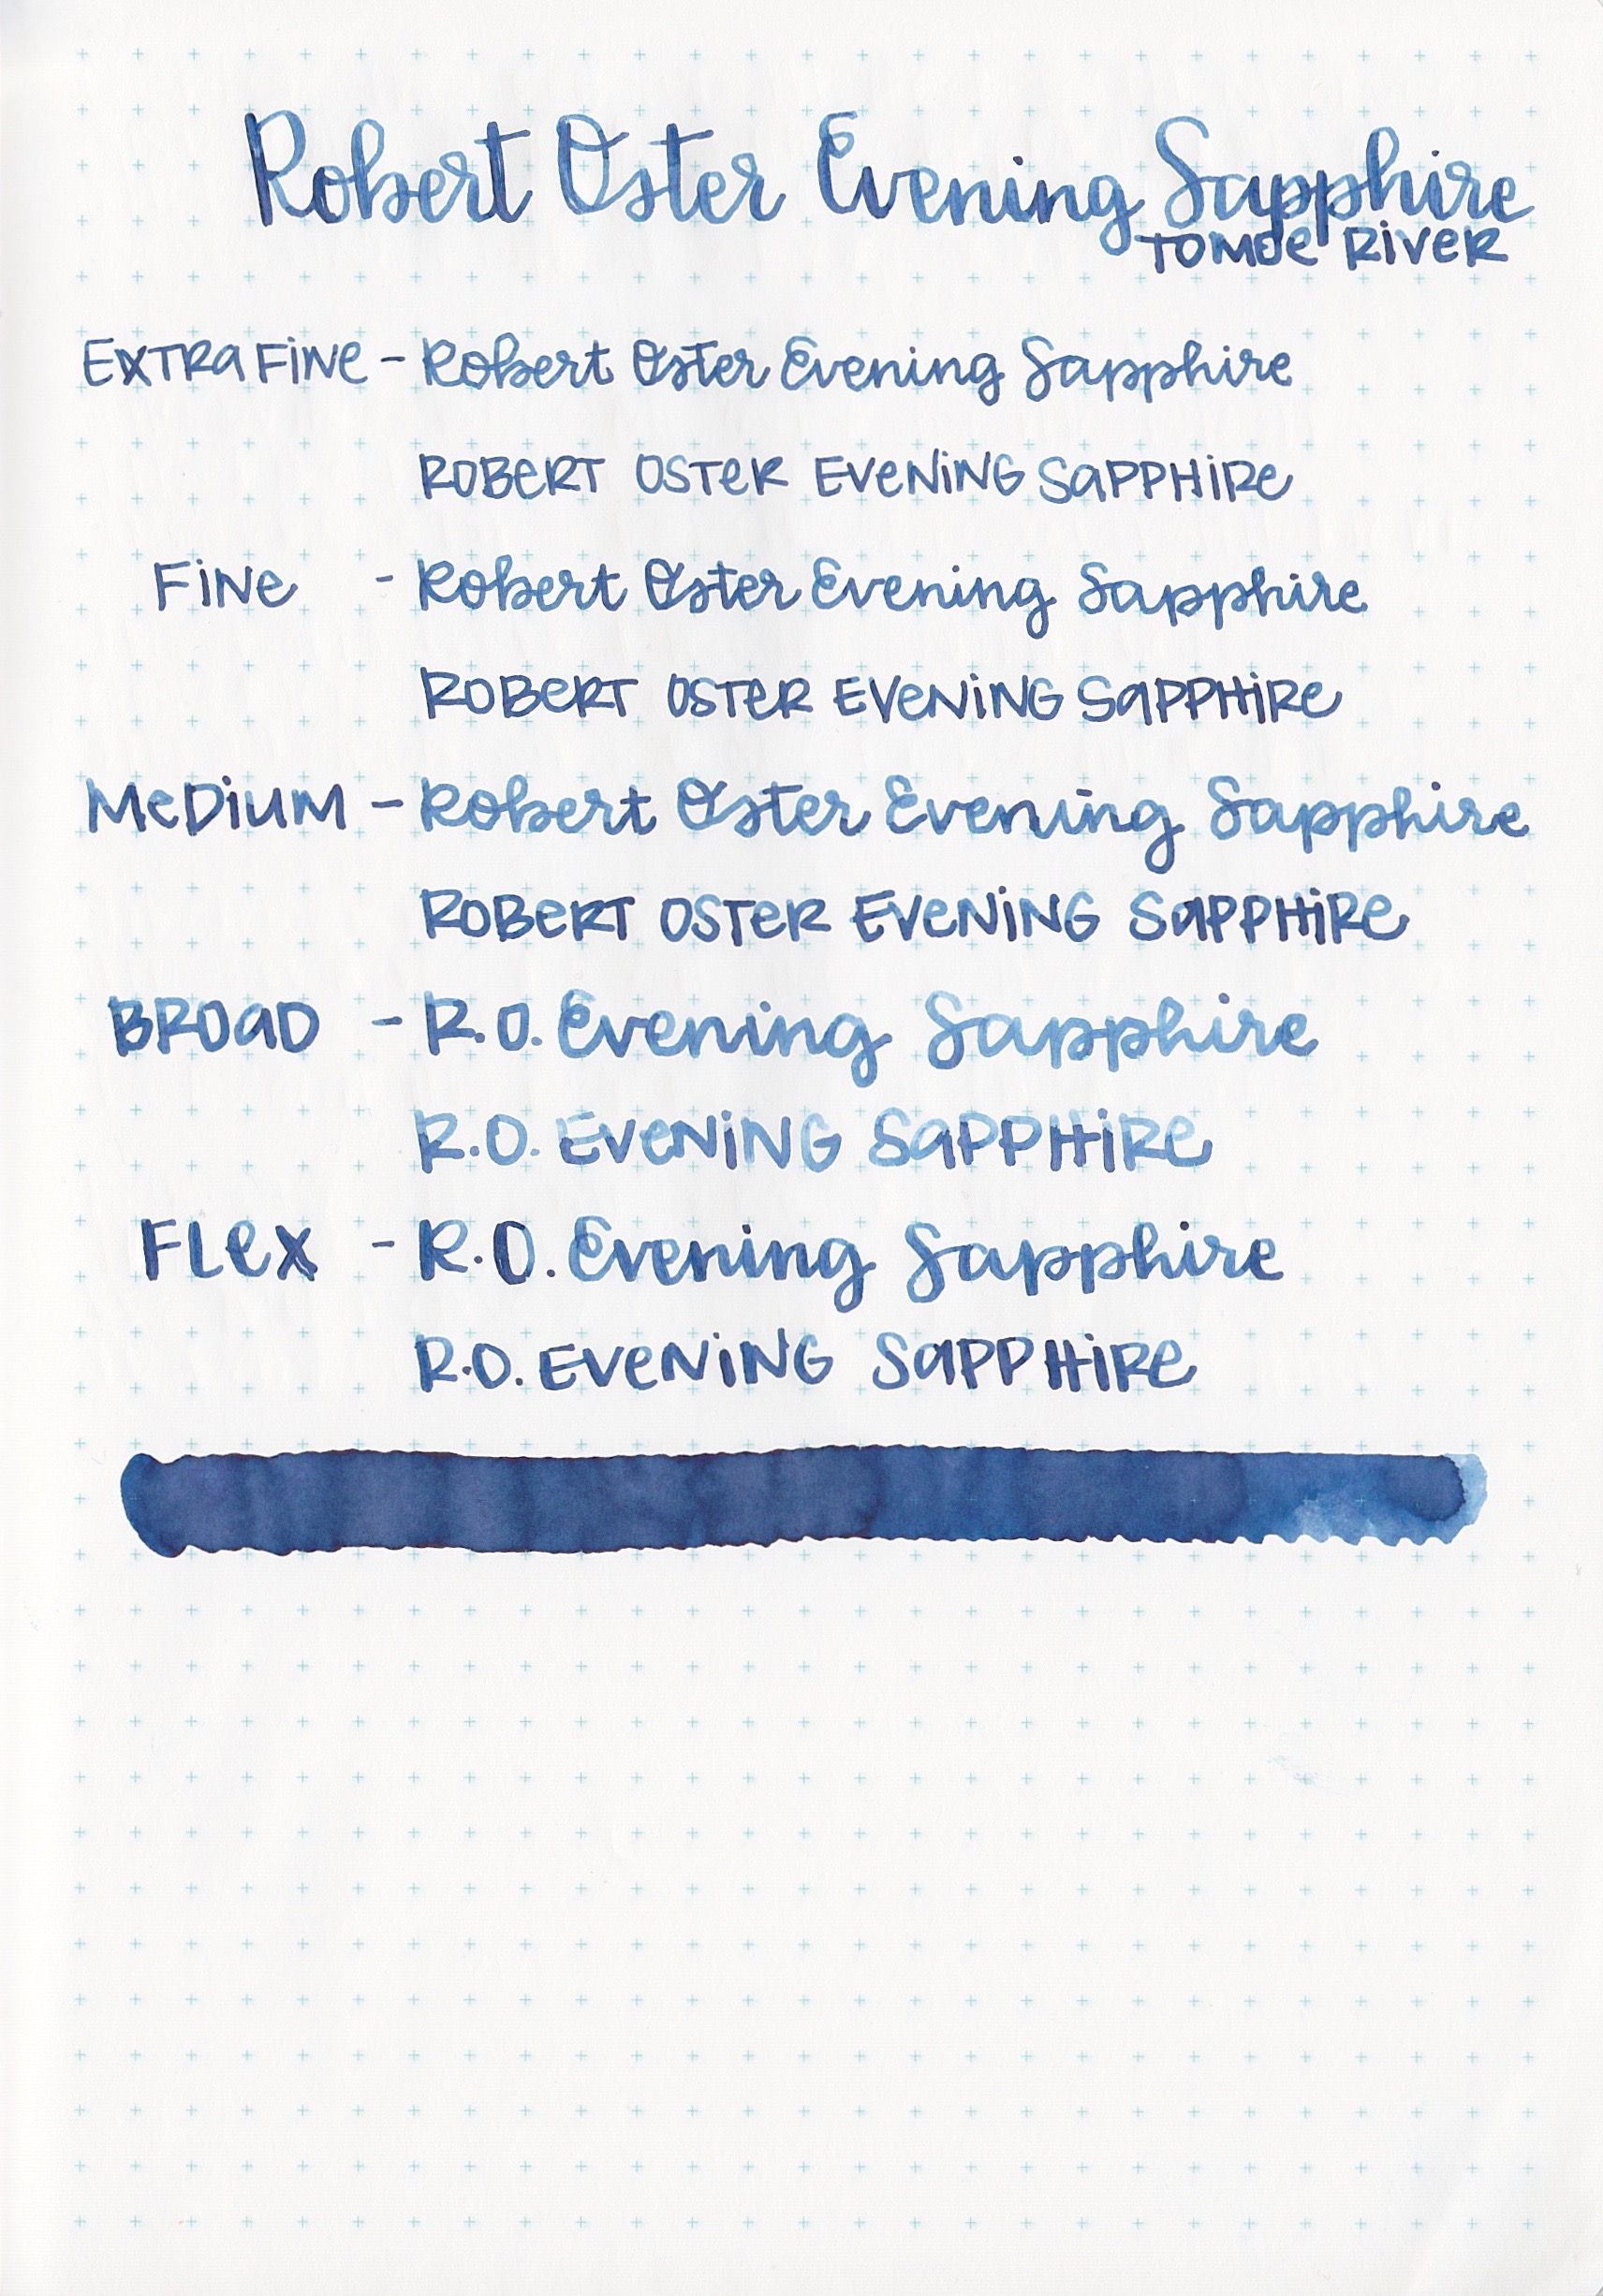 Robert Oster Evening Sapphire
TOMOE RIVER
EXTRA FINE - Robert Oster Evening Sapphire
ROBERT OSTER EVENING SAPPHIRE
FINE - Robert Oster Evening Sapphire
ROBERT OSTER EVENING SAPPHIRE
MEDIUM - Robert Oster Evening Sapphire
ROBERT OSTER EVENING SAPPHIRE
BROAD - R.O. Evening Sapphire
R.O. EVENING SAPPHIRE
FLEX - R.O. Evening Sapphire
R.O. EVENING SAPPHIRE